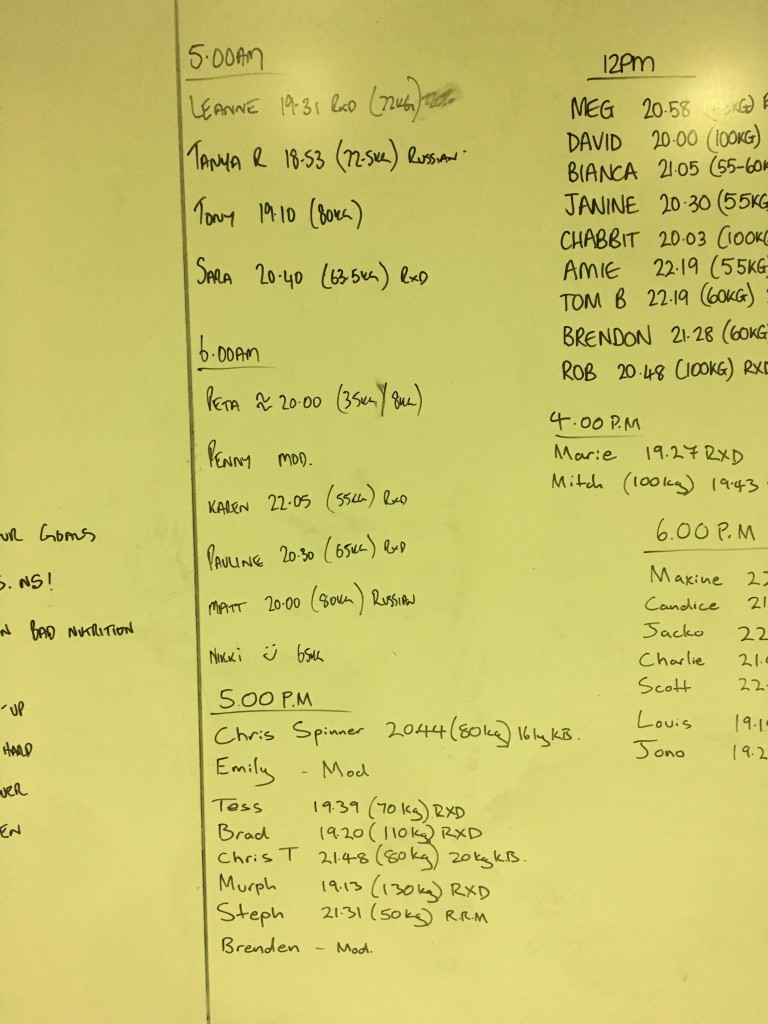 5.00AM
LEANNE 19.31 RXD (72KG)
TANYA R 18.53 (72.5KG) RUSSIAN
TONY 19.10 (80KG)
SARA 20.40 (63.5KG) RXD
6.00AM
PETA ≈ 20.00 (35KG/8KG)
PENNY MOD.
KAREN 22.05 (55KG) RXD
PAULINE 20.30 (65KG) RXD
MATT 20.00 (80KG) RUSSIAN
NIKKI 65KG
5.00 P.M
Chris Spinner 20.44 (80kg) 16kg KB.
Emily - Mod
Tess 19.39 (70kg) RXD
Brad 19.20 (110kg) RXD
Chris T 21.48 (80kg) 20kg KB.
Murph 19.13 (130kg) RXD
Steph 21.31 (50kg) R.R.M
Brenden - Mod.
12PM
MEG 20.58 KG)
DAVID 20.00 (100KG)
BIANCA 21.05 (55-60K
JANINE 20.30 (55KG
CHABBIT 20.03 (100KG
AMIE 22.19 (55KG
TOM B 22.19 (60KG)
BRENDON 21.28 (60KG
ROB 20.48 (100KG) RXD
4.00 P.M
Marie 19.27 RXD
Mitch (100kg) 19.43
6.00 P.M
Maxine 22
Candice 21
Jacko 22
Charlie 21.
Scott 22.
Louis 19.1
Jono 19.2
UR GOALS
S. NS!
N BAD NUTRITION
-UP
HARD
VER
EN